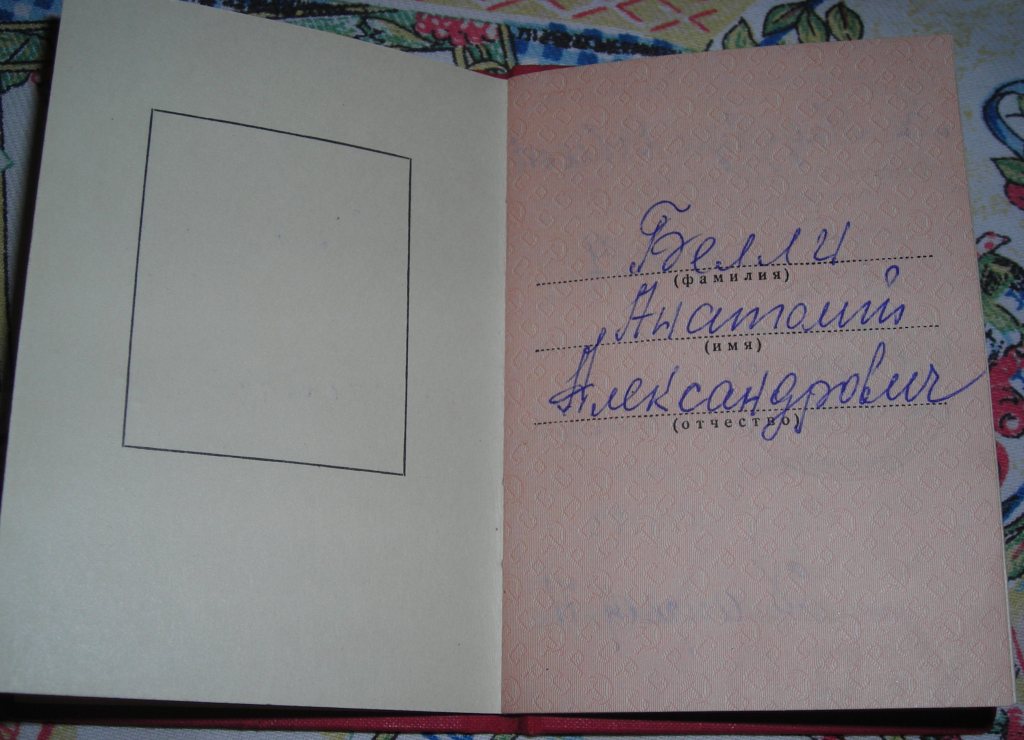 Белли
(фамилия)
Анатолий
(имя)
Александрович
(отчество)